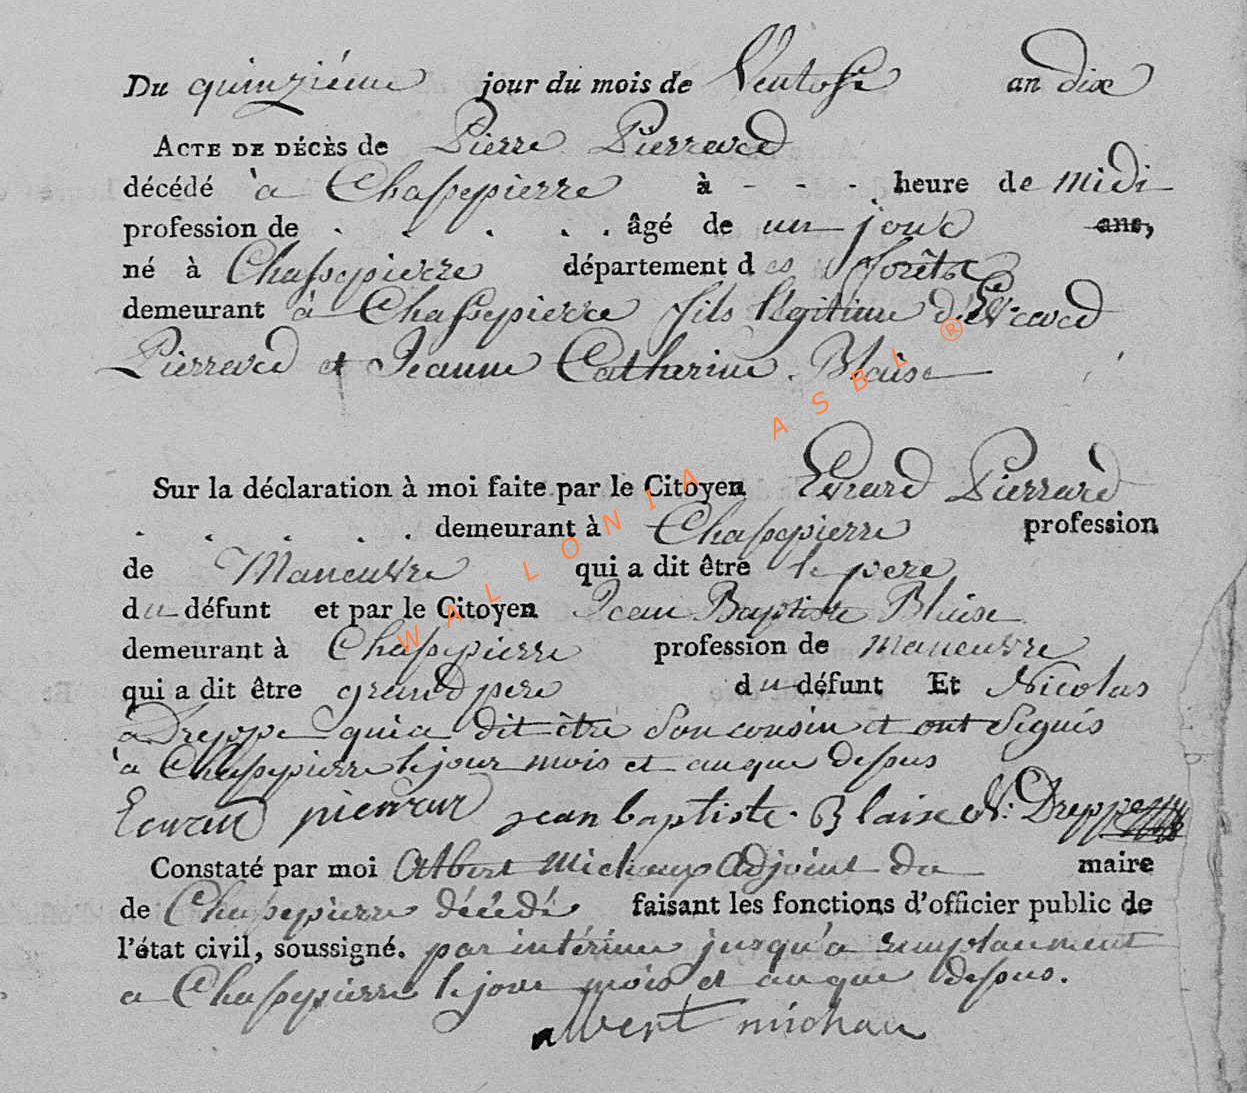 Du quinziéme jour du mois de Ventose an dix
ACTE DE DÉCÈS de Pierre Pierrard
décédé à Chassepierre à - - - heure de midi
profession de . . . . . . âgé de un jour ans,
né à Chassepierre département des forêts
demeurant à Chassepierre fils légitime d'Evrard
Pierrard et Jeanne Catherine Blaise
Sur la déclaration à moi faite par le Citoyen Evrard Pierrard
. . . . . demeurant à Chassepierre profession
de Maneuvre qui a dit être le pere
du défunt et par le Citoyen Jean Baptiste Blaise
demeurant à Chassepierre profession de maneuvre
qui a dit être grand pere du défunt Et Nicolas
Dreppe qui a dit être son cousin et ont signés
à Chassepierre le jour mois et an que dessus
Evrard pierrard jean baptiste Blaise N: Dreppe
Constaté par moi Albert Michaux Adjoint du maire
de Chassepierre décédé faisant les fonctions d'officier public de
l'état civil, soussigné. par intérime jusqu'a remplacement
a Chassepierre le jour mois et an que dessus.
albert michau
WALLONIA ASBL ®